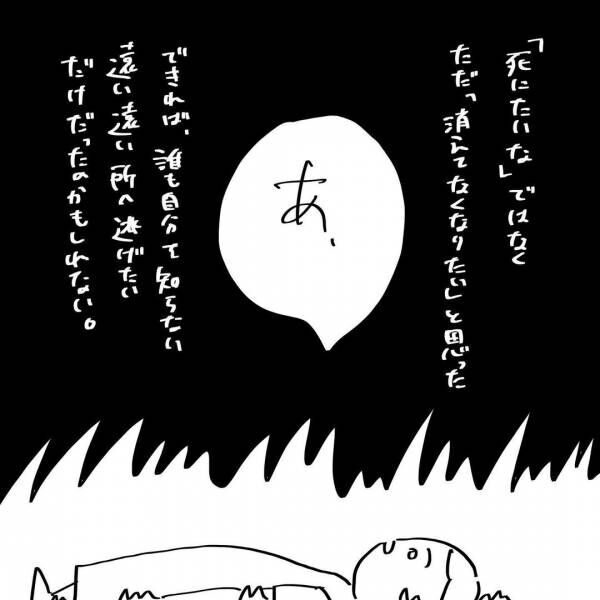 「死にたいな」ではなく
ただ「消えてなくなりたい」と思った
あ、
できれば、誰も自分を知らない
遠い遠い所へ逃げたい
だけだったのかもしれない。